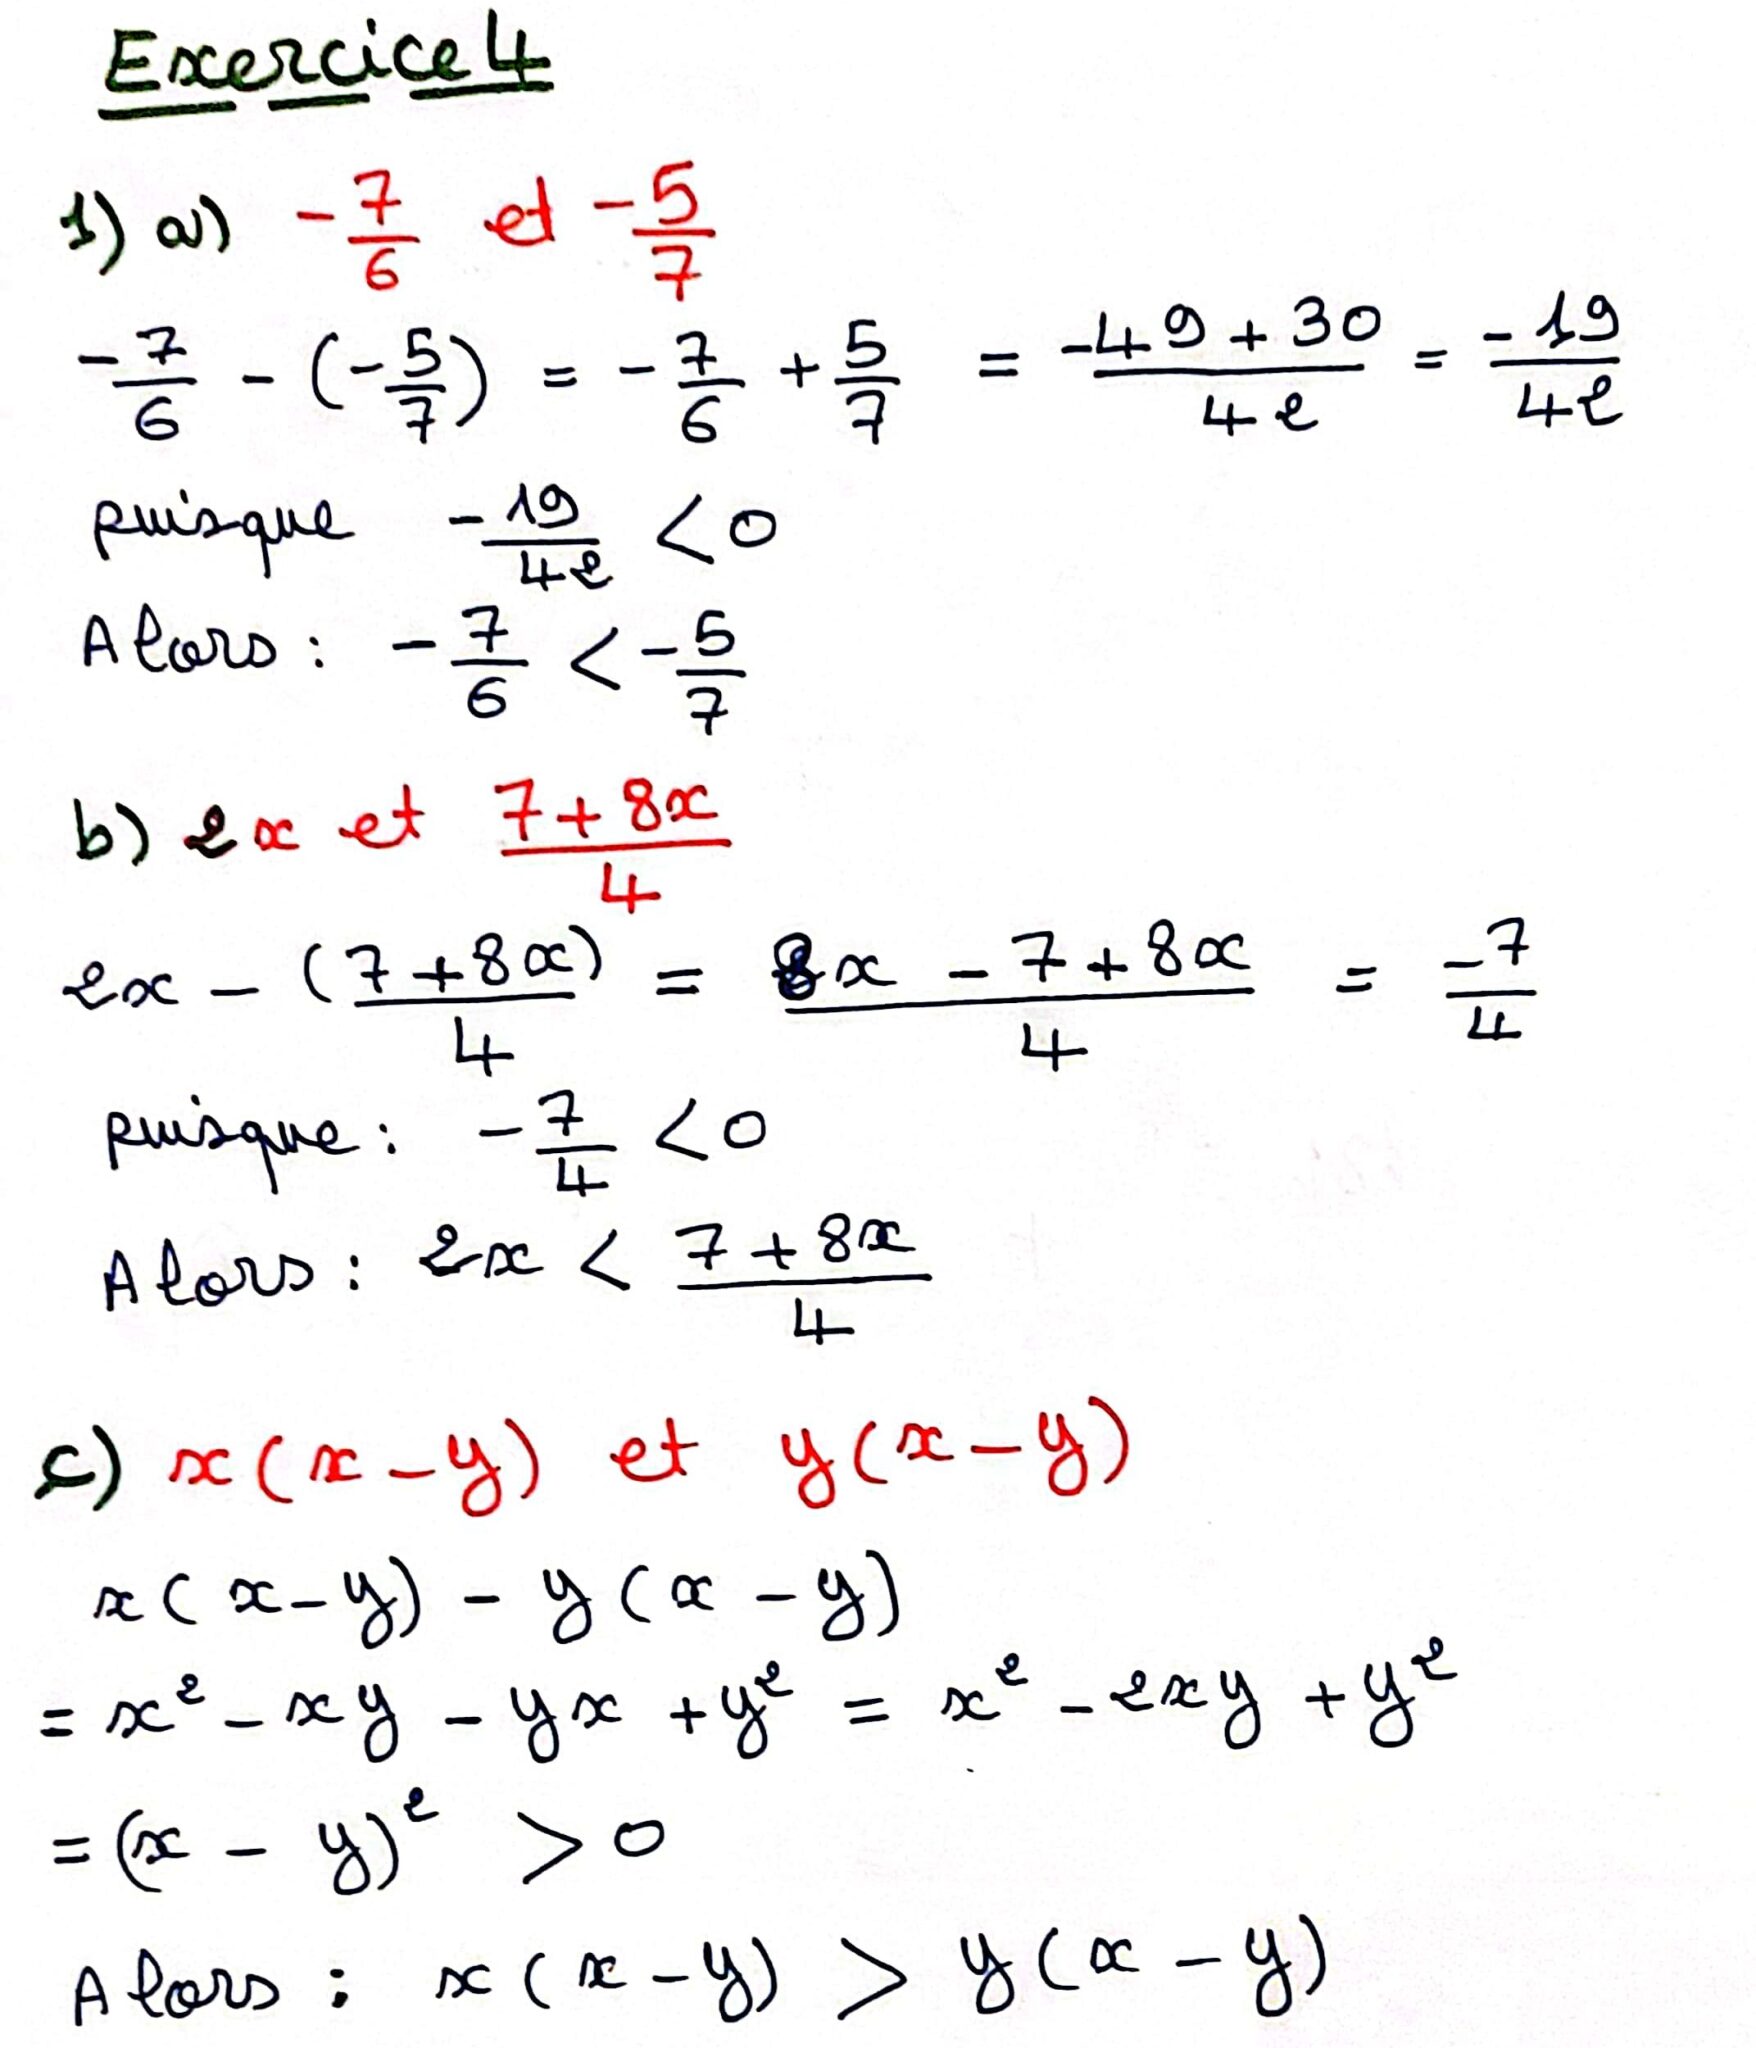 Exercice 4
1) a) -7/6 et -5/7
-7/6 - (-5/7) = -7/6 + 5/7 = (-49 + 30)/42 = -19/42
puisque -19/42 < 0
Alors : -7/6 < -5/7
b) 2x et (7 + 8x)/4
2x - (7 + 8x)/4 = (8x - 7 + 8x)/4 = -7/4
puisque : -7/4 < 0
Alors : 2x < (7 + 8x)/4
c) x(x - y) et y(x - y)
x(x - y) - y(x - y)
= x² - xy - yx + y² = x² - 2xy + y²
= (x - y)² > 0
Alors : x(x - y) > y(x - y)